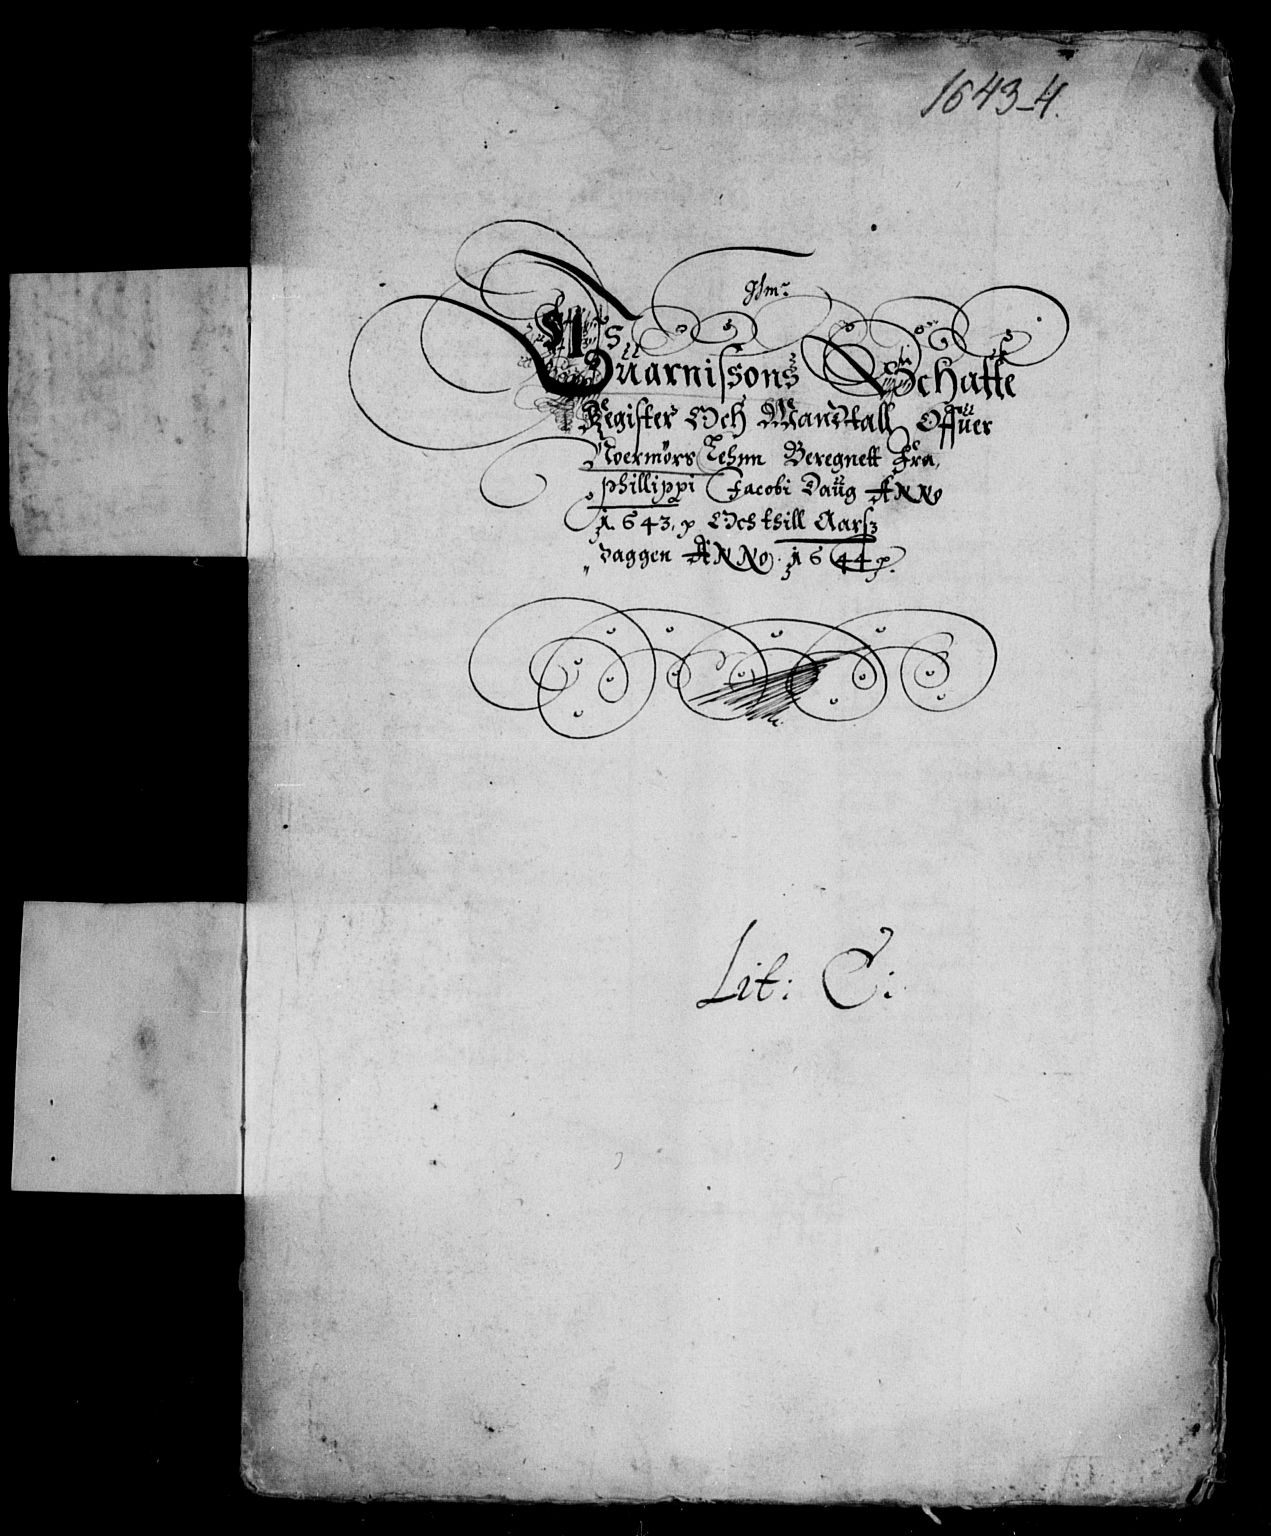 1643-4.
Guarnißons Schatte
Register Och Mandtall Offuer
Noermørs Lehnn Beregnett Fra,
Phillippi Jacobi Daug ANNo
1643, Och thill Aarsz
daggen ANNo. 1644
Lit: C: